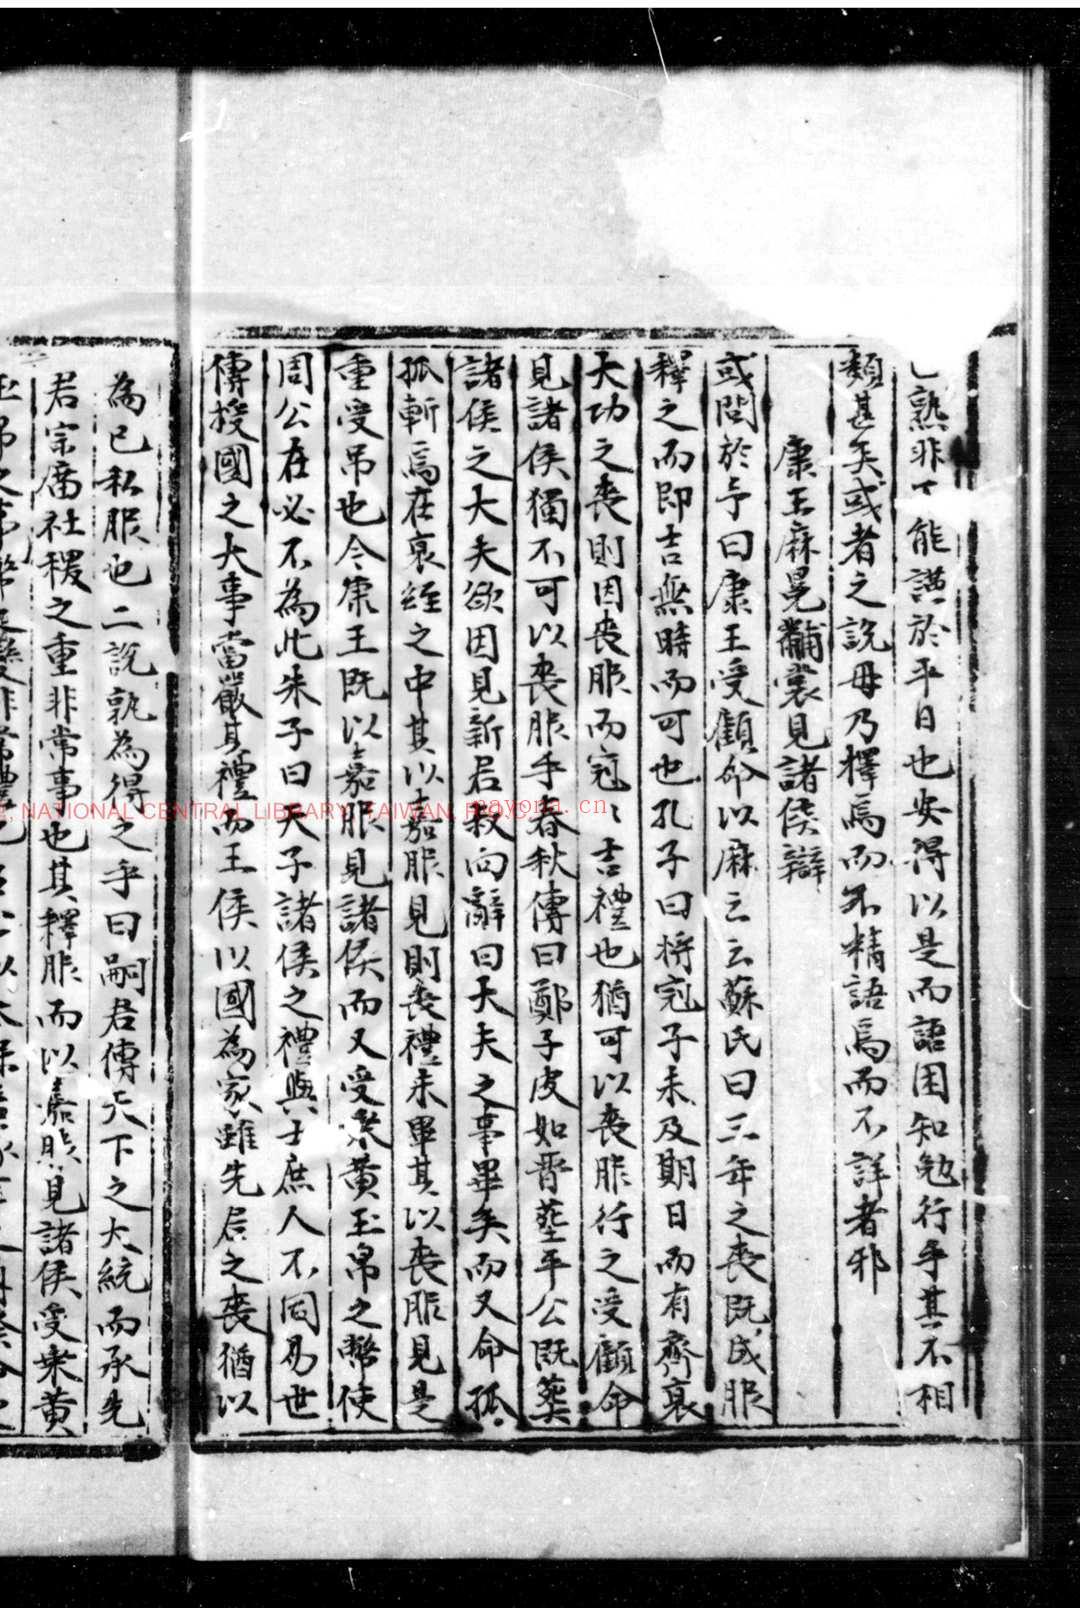 熟非不能謹於平日也安得以是而語困知勉行乎其不相
類甚矣或者之說毋乃擇焉而不精語焉而不詳者邪
康王麻冕黼裳見諸侯辯
或問於予曰康王受顧命以麻云云蘇氏曰三年之喪既成服
釋之而即吉無時而可也孔子曰將冠子未及期日而有齊衰
大功之喪則因喪服而冠〻吉禮也猶可以喪服行之受顧命
見諸侯獨不可以喪服乎春秋傳曰鄭子皮如晉葬平公既葬
諸侯之大夫欲因見新君叔向辭曰大夫之事畢矣而又命孤
孤斬焉在衰絰之中其以嘉服見則喪禮未畢其以喪服見是
重受吊也今康王既以嘉服見諸侯而又受乘黃玉帛之幣使
周公在必不為此朱子曰天子諸侯之禮與士庶人不同易世
傳授國之大事當嚴其禮而王侯以國為家雖先君之喪猶以
為已私服也二說孰為得之乎曰嗣君傳天下之大統而承先
君宗廟社稷之重非常事也其釋服而以嘉服見諸侯受乘黃
NATIONAL CENTRAL LIBRARY, TAIWAN, R.O.C.
mayona.cn